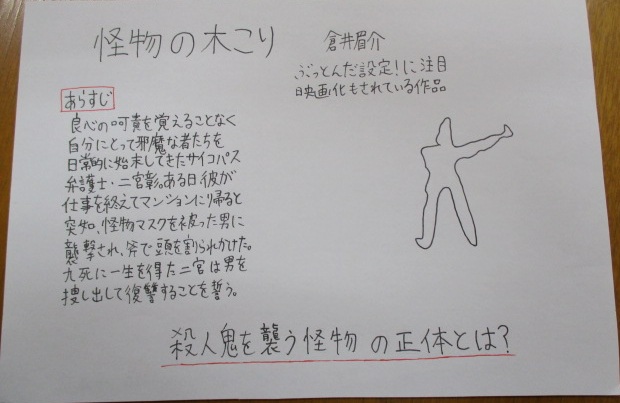 怪物の木こり
倉井眉介
ぶっとんだ設定!に注目
映画化もされている作品
あらすじ
良心の呵責を覚えることなく
自分にとって邪魔な者たちを
日常的に始末してきたサイコパス
弁護士・二宮彰。ある日彼が
仕事を終えてマンションに帰ると
突如、怪物マスクを被った男に
襲撃され、斧で頭を割られかけた。
九死に一生を得た二宮は男を
捜し出して復讐することを誓う。
殺人鬼を襲う怪物の正体とは?